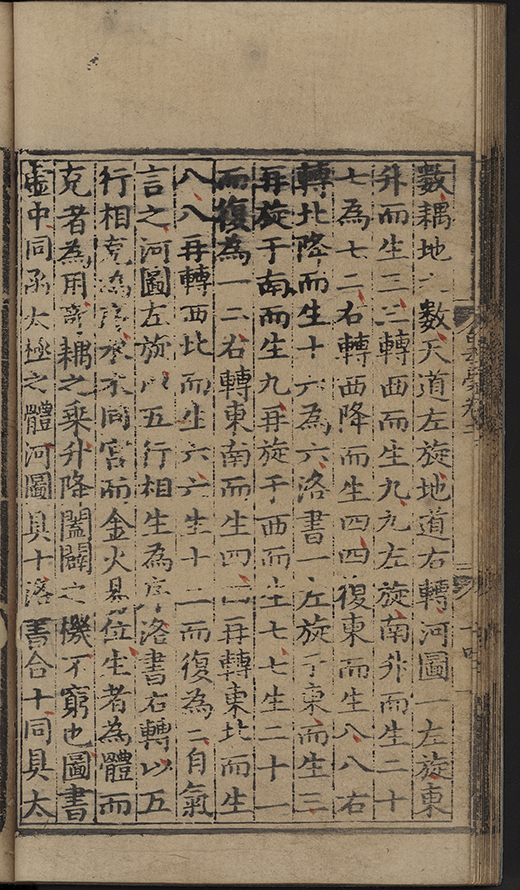 數耦地數天道左旋地道右轉河圖一左旋東
升而生三三轉西而生九九左旋南升而生二十
七為七二右轉西降而生四四復東而生八八右
轉北降而生十六為六洛書一左旋于東而生三
再旋于南而生九再旋于西而生七七生二十一
而復為一二右轉東南而生四四再轉東北而生
八八再轉西北而生六六生十二而復為二自氣
言之河圖左旋以五行相生為序洛書右轉以五
行相克為序水木同宮而金火易位生者為體而
克者為用奇耦之乘升降闔闢之機不窮也圖書
虛中同函太極之體河圖具十洛書合十同具太